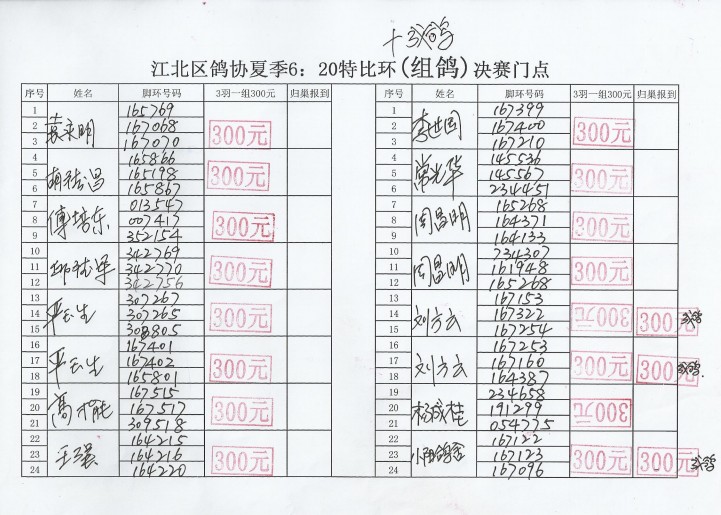 江北区鸽协夏季6：20特比环(组鸽)决赛门点
序号 姓名 脚环号码 3羽一组300元 归巢报到
1 165769
2 袁来明 167068 300元
3 167070
4 165866
5 165198 300元
6 165867
7 013547
8 傅培东 007417 300元
9 352154
10 342769
11 342770 300元
12 342756
13 307267
14 严玉生 307265 300元
15 308805
16 167401
17 严玉生 167402 300元
18 165801
19 167515
20 167517 300元
21 309518
22 164215
23 王强 164216 300元
24 164220
序号 姓名 脚环号码 3羽一组300元 归巢报到
1 167399
2 李世国 167400 300元
3 167210
4 145536
5 常光华 145567 300元
6 234451
7 165268
8 周昌明 164371 300元
9 164133
10 734307
11 周昌明 161948 300元
12 165268
13 167153
14 刘方云 167322 300元 300元
15 167254
16 167253
17 刘方云 167160 300元 300元
18 164387
19 234658
20 杨成桂 191299 300元
21 054775
22 167122
23 167123 300元 300元
24 167096